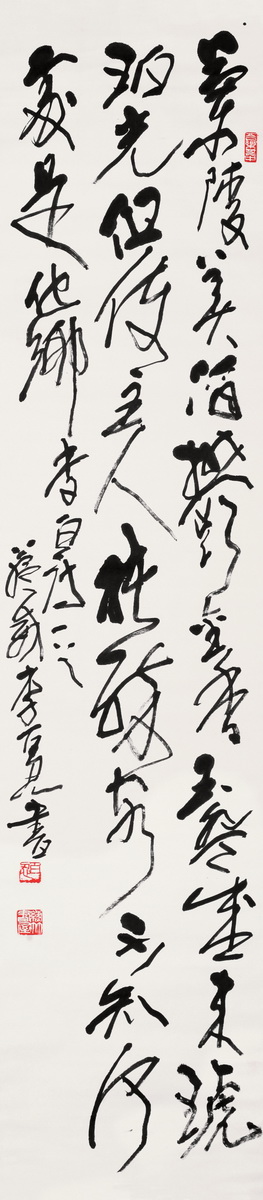 蘭陵美酒鬱金香玉盌盛來琥
珀光但使主人能醉客不知何
處是他鄉
李白詩一首
李百忍書